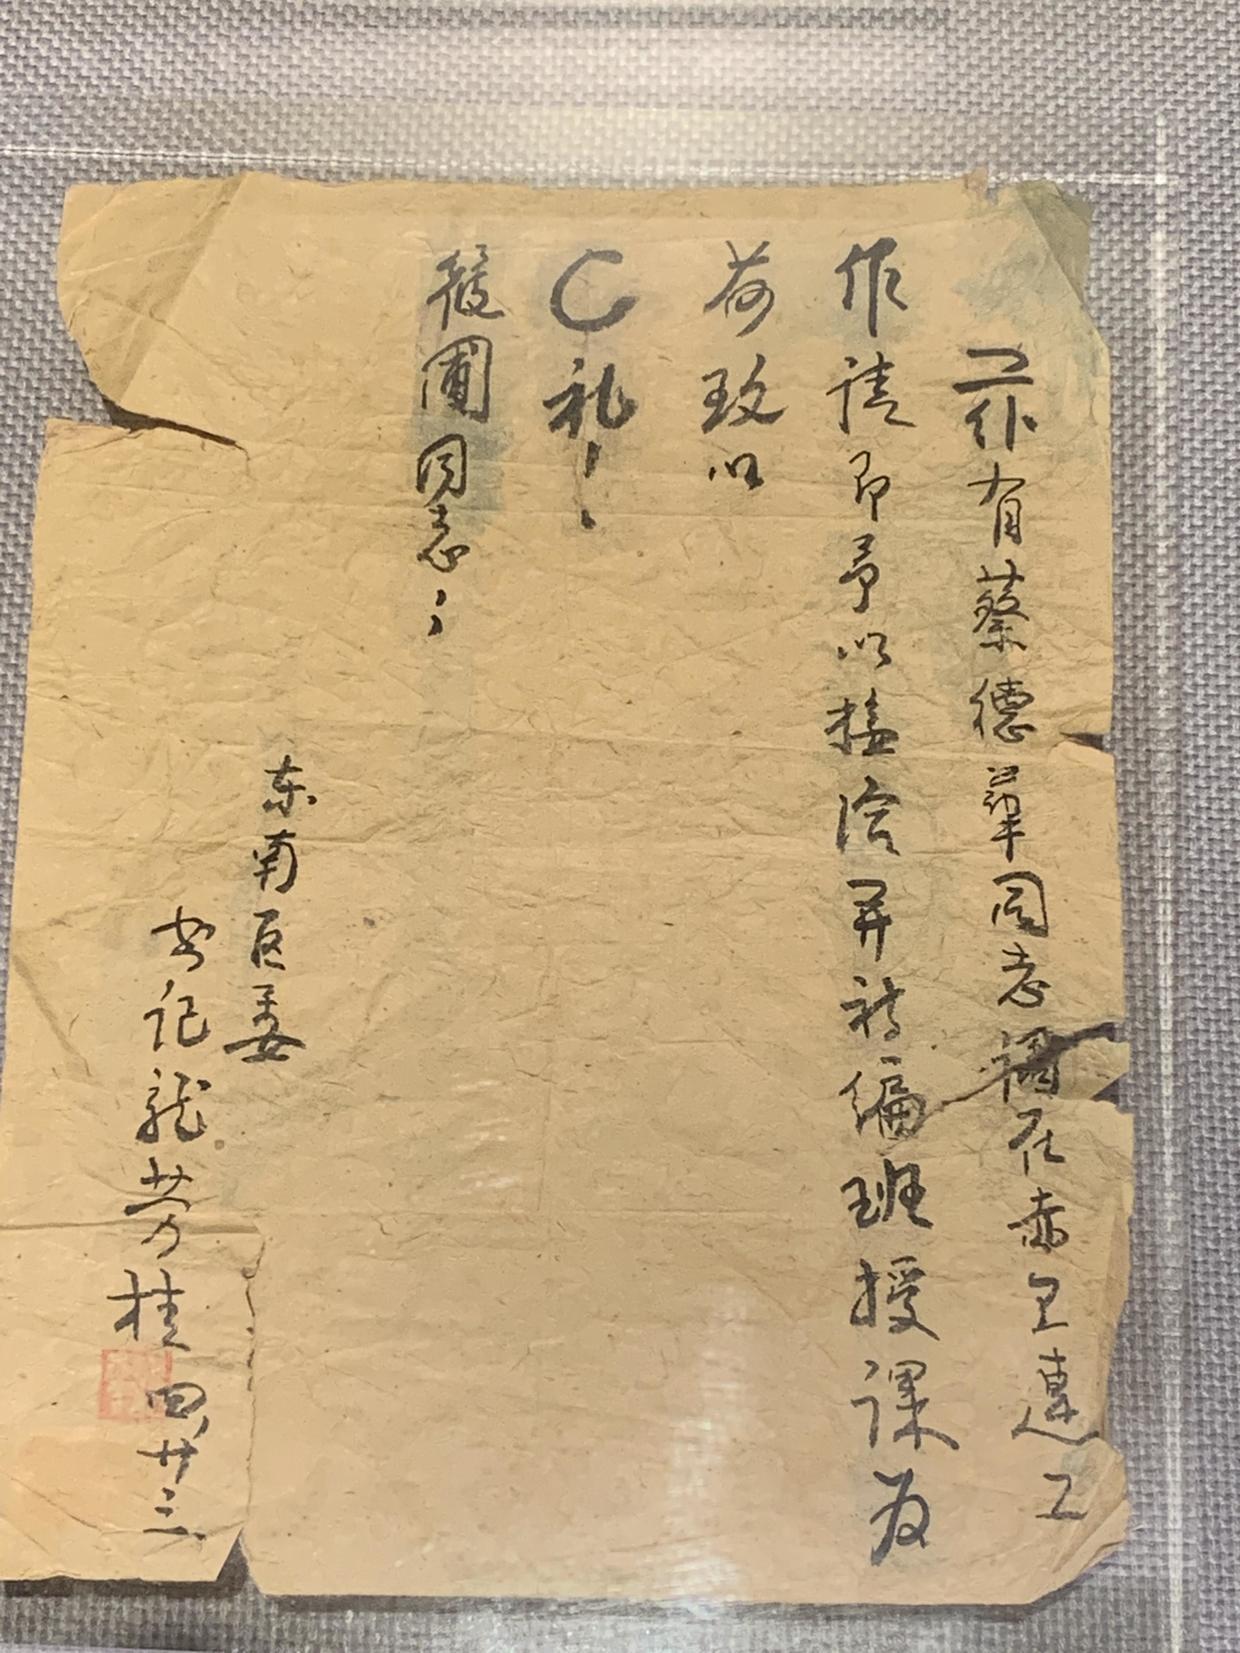 兹介有蔡德華同志𫧃在赤里連工
作请即予以接洽并祈编班授课为
荷致以
C礼！
筱圃同志：
东南区委
书记龙芳桂 四、廿三、